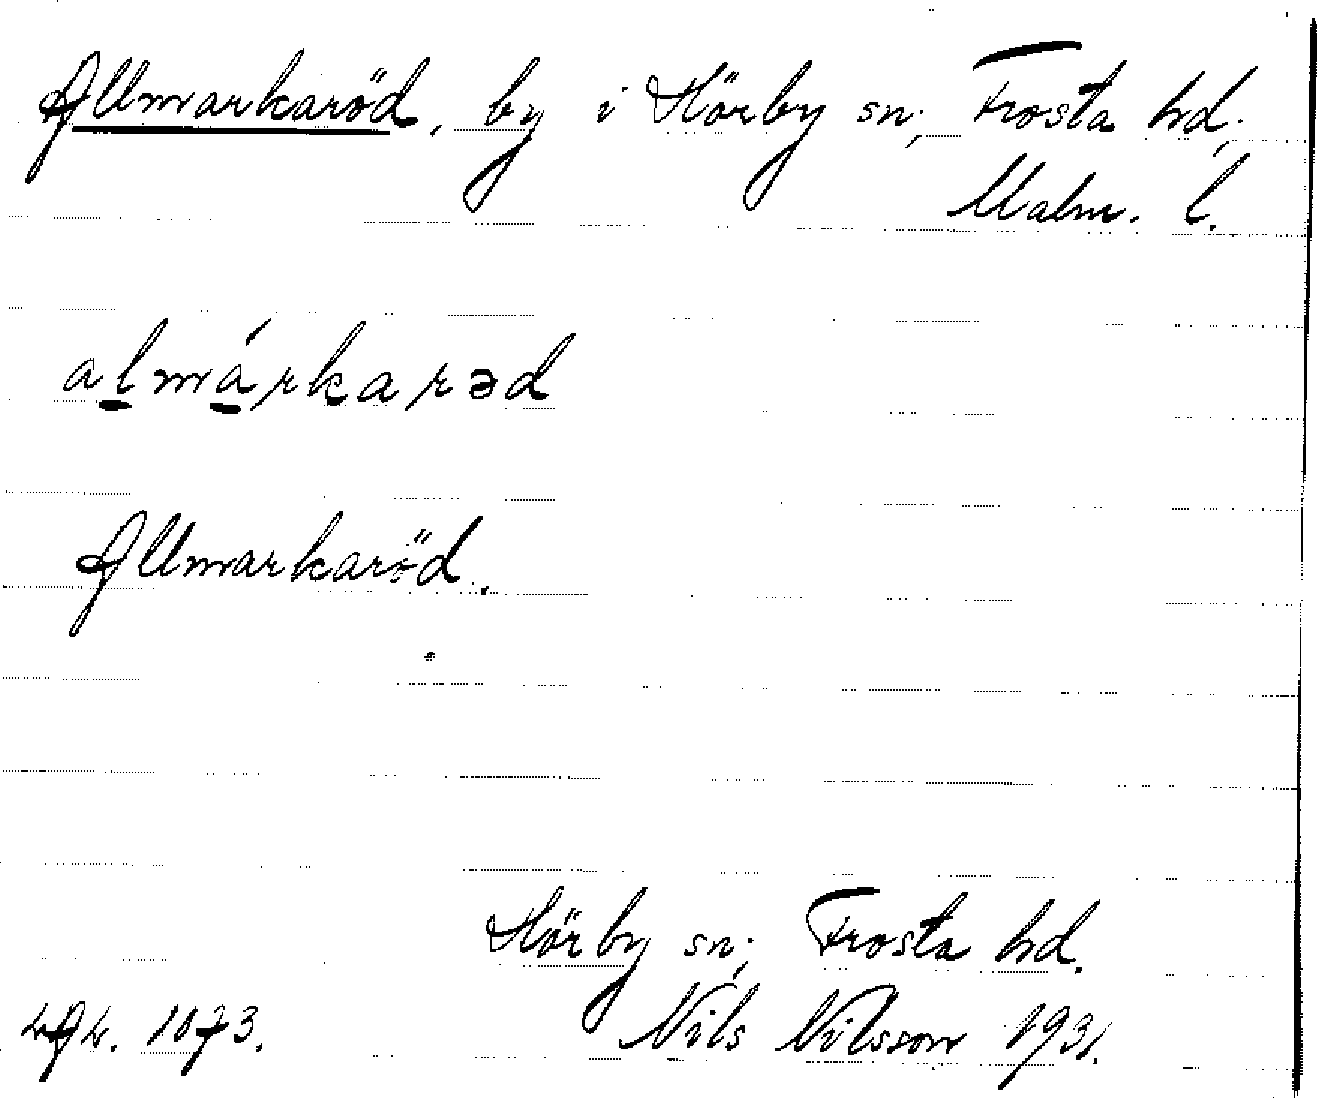 Allmarkaröd, by i Hörby sn, Frosta hd,
Malm. l.
almárkarəd
Allmarkaröd.
Hörby sn, Frosta hd.
1073. Nils Nilsson 1931.